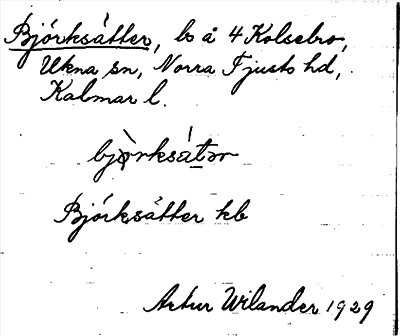 Björksätter, bs å 4 Kolsebro,
Ukna sn, Norra Tjusts hd,
Kalmar l.
bjò̱rksátər
Björksätter kb
Artur Wilander 1929